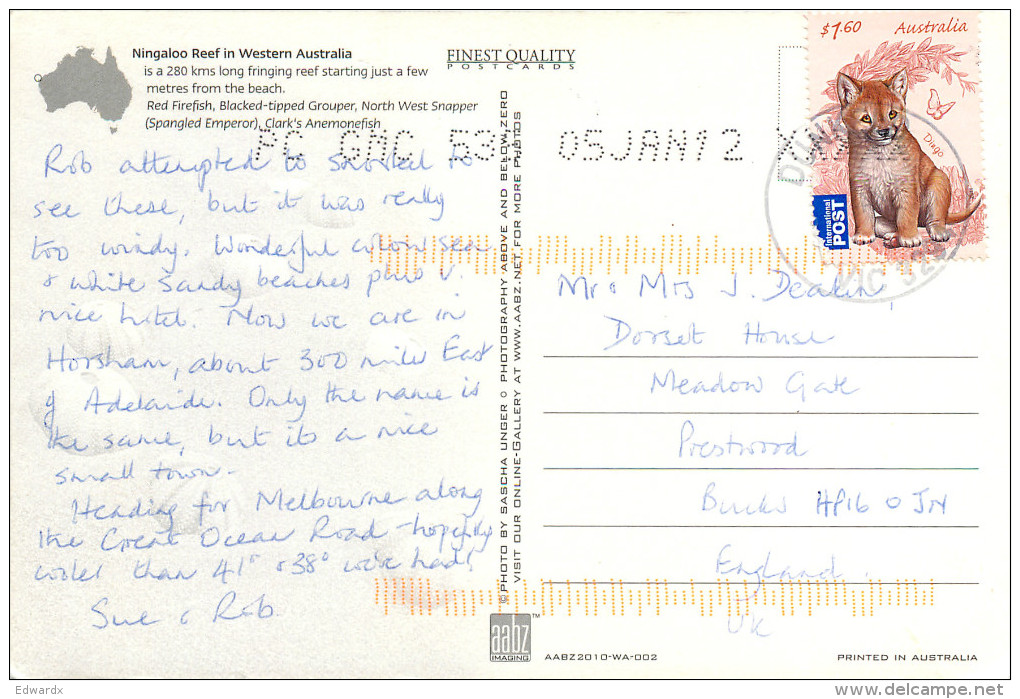 Ningaloo Reef in Western Australia
is a 280 kms long fringing reef starting just a few
metres from the beach.
Red Firefish, Blacked-tipped Grouper, North West Snapper
(Spangled Emperor), Clark's Anemonefish
FINEST QUALITY
POSTCARDS
$1.60 Australia
Dingo
International
POST
PC GMC 53 05JAN12 X
Rob attempted to snorkel to
see these, but it was really
too windy. Wonderful colour sea
& white sandy beaches plus v.
nice hotel. Now we are in
Horsham, about 300 miles East
of Adelaide. Only the name is
the same, but its a nice
small town.
Heading for Melbourne along
the Great Ocean Road - hopefully
cooler than 41° & 38° we've had!
Sue & Rob.
© PHOTO BY SASCHA UNGER © PHOTOGRAPHY ABOVE AND BELOW ZERO
VISIT OUR ONLINE-GALLERY AT WWW.AABZ.NET FOR MORE PHOTOS
Mr & Mrs J. Deakin,
Dorset House
Meadow Gate
Prestwood
Bucks HP16 0JN
England.
UK
aabz
IMAGING
AABZ2010-WA-002
PRINTED IN AUSTRALIA
Edwardx
delcampe.net